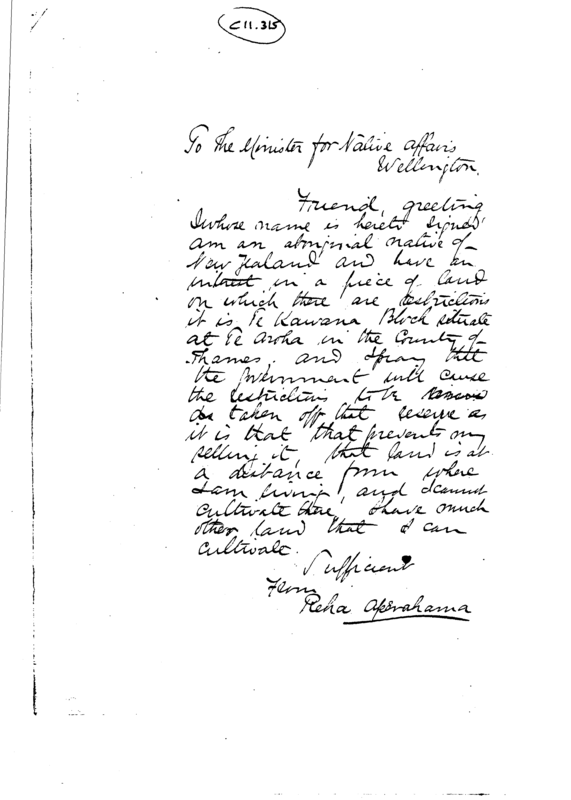 C11.315
To The Minister for Native Affairs
Wellington.
Friend, greeting
I whose name is hereto signed
am an aboriginal native of
New Zealand and have an
interest in a piece of land
on which there are restrictions
it is Te Kawana Block situate
at Te Aroha in the County of
Thames. and I pray that
the Government will cause
the restrictions to be
taken off that reserve as
it is that that prevents my
selling it, that land is at
a distance from where
I am living, and I cannot
cultivate there, I have much
other land that I can
cultivate.
Sufficient
From
Reha Aperahama